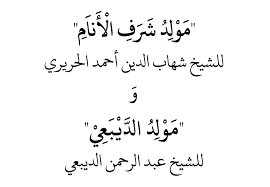 "مَوْلِدُ شَرَفِ الْأَنَامِ"
للشيخ شهاب الدين أحمد الحريري
وَ
"مَوْلِدُ الدَّيْبَعِيْ"
للشيخ عبد الرحمن الديبعي